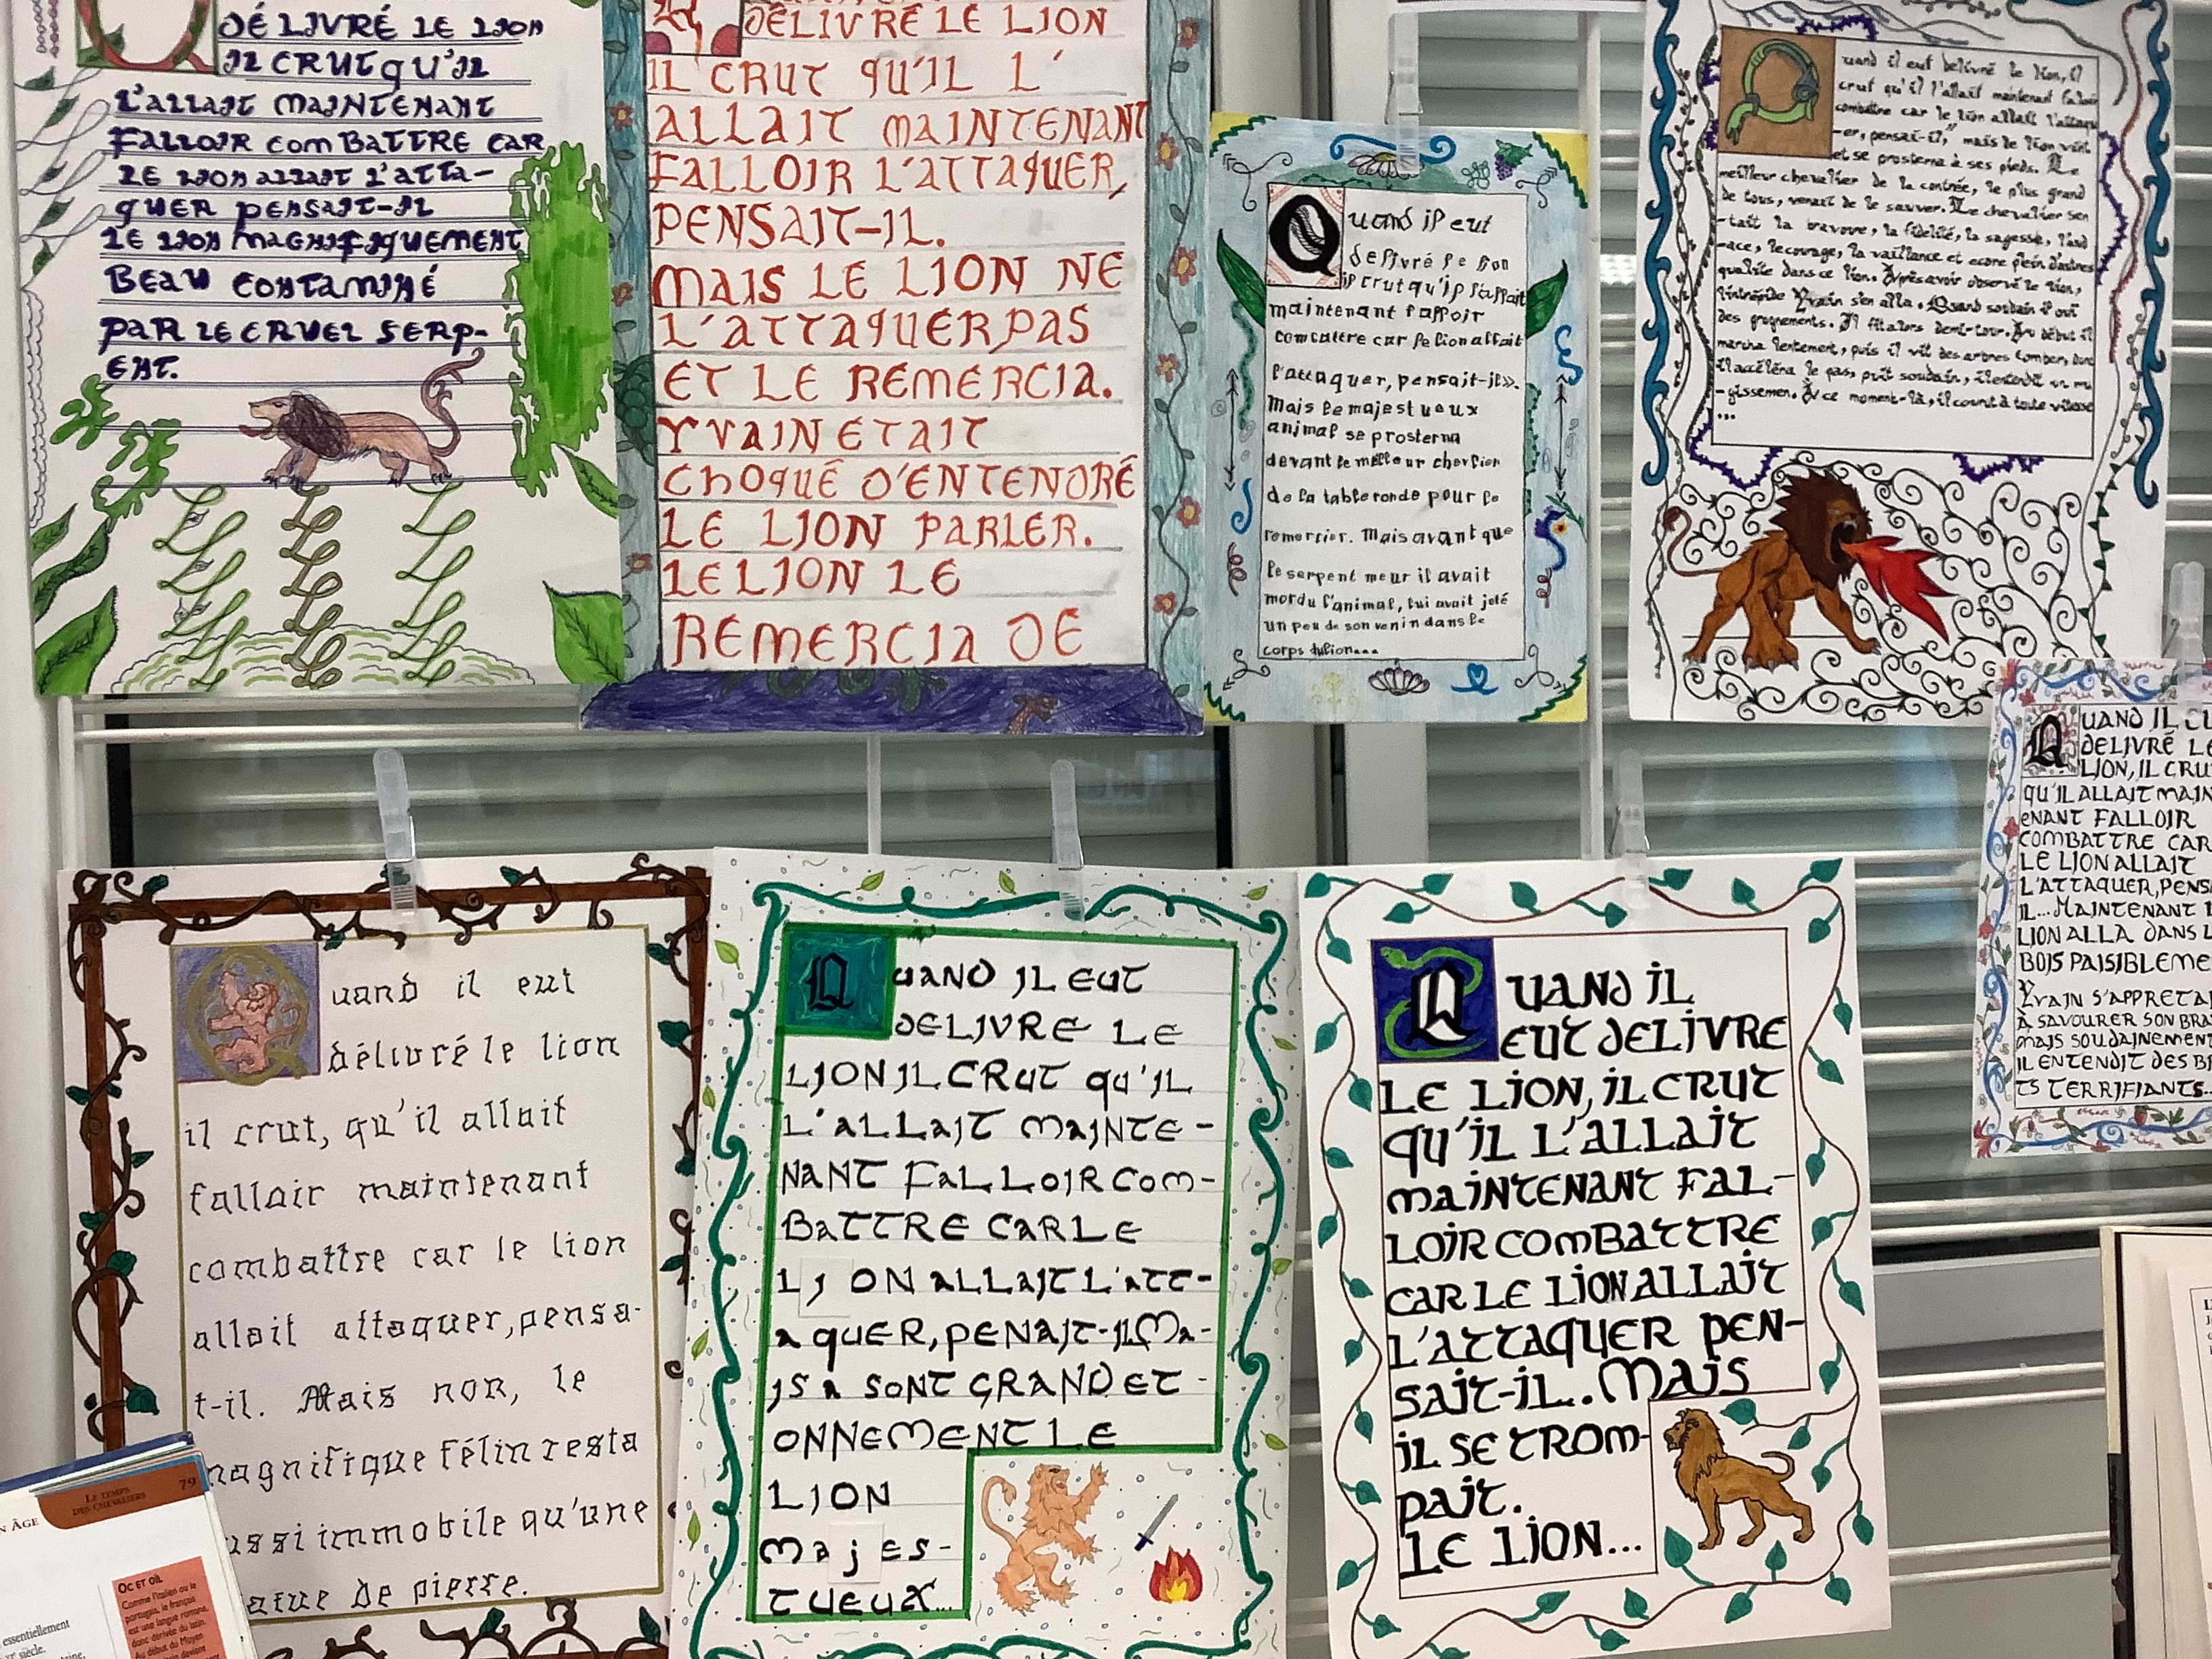 DÉLIVRÉ LE LION
IL CRUT QU'IL
L'ALLAIT MAINTENANT
FALLOIR COMBATTRE CAR
LE LION ALLAIT L'ATTA-
QUER PENSAIT-IL
LE LION MAGNIFIQUEMENT
BEAU CONTAMINÉ
PAR LE CRUEL SERP-
ENT.
DÉLIVRÉ LE LION
IL CRUT QU'IL L'
ALLAIT MAINTENANT
FALLOIR L'ATTAQUER,
PENSAIT-IL.
MAIS LE LION NE
L'ATTAQUER PAS
ET LE REMERCIA.
YVAIN ETAIT
CHOQUÉ D'ENTENDRÉ
LE LION PARLER.
LE LION LE
REMERCIA DE
Quand il eut
delivré le lion
il crut qu'il l'allait
maintenant falloir
combattre car le lion allait
l'attaquer, pensait-il».
Mais le majestueux
animal se prosterna
devant le meilleur chevlier
de la table ronde pour le
remercier. Mais avant que
le serpent meur il avait
mordu l'animal, lui avait jeté
un peu de son venin dans le
corps du lion...
Quand il eut delivré le lion, il
crut qu'il l'allait maintenant falloir
combattre car le lion allait l'attaqu
-er, pensai-il," mais le lion vint
et se prosterna à ses pieds. Le
meilleur chevalier de la contrée, le plus grand
de tous, venait de le sauver. Le chevalier sen
-tait la bravoure, la fidélité, la sagesse, l'aud
-ace, le courage, la vaillance et encore plein d'autres
qualité dans ce lion. Après avoir observé le lion,
l'intrépide Yvain s'en alla. Quand soudain il ouï
des grognements. Il fit alors demi-tour. Au début il
marcha lentement, puis il vit des arbres tomber, donc
il accéléra le pas, puit soudain, il entendit un ru
-gissemen. À ce moment-là, il courut à toute vitesse
...
QUAND IL
DELIVRÉ LE
LION, IL CRU
QU'IL ALLAIT MAIN
ENANT FALLOIR
COMBATTRE CAR
LE LION ALLAIT
L'ATTAQUER, PENSA
IL... MAINTENANT
LION ALLA DANS L
BOIS PAISIBLEME
YVAIN S'APPRETA
À SAVOURER SON BRA
MAIS SOUDAINEMENT
IL ENTENDIT DES B
TS TERRIFIANTS...
Quand il eut
délivré le lion
il crut, qu'il allait
falloir maintenant
combattre car le lion
allait attaquer, pensa-
t-il. Mais non, le
magnifique félin resta
ussi immobile qu'une
atue de pierre.
QUAND IL EUT
DELIVRE LE
LION IL CRUT QU'IL
L'ALLAIT MAINTE-
NANT FALLOIR COM-
BATTRE CAR LE
LION ALLAIT L'ATT-
AQUER, PENAIT-IL MA-
IS A SONT GRAND ET-
ONNEMENT LE
LION
MAJES-
TUEUX...
QUAND IL
EUT DELIVRE
LE LION, IL CRUT
QU'IL L'ALLAIT
MAINTENANT FAL-
LOIR COMBATTRE
CAR LE LION ALLAIT
L'ATTAQUER PEN-
SAIT-IL.. MAIS
IL SE TROM-
PAIT.
LE LION...
LE TEMPS
DES CHEVALIERS
79
N ÂGE
OC ET OÏL
Comme l'italien ou le
portugais, le français
est une langue romane,
donc dérivée du latin.
Au début du Moyen
essentiellement
siècle.